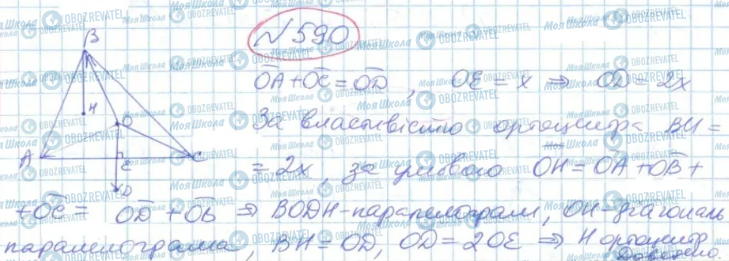 №590
B
OA + OC = OD, OE = x ⇒ OD = 2x
H
O
За властивістю ортоцентра BH =
A
E
C
= 2x, за умовою OH = OA + OB +
D
+ OC = OD + OB ⇒ BODH - паралелограм, OH - діагональ
паралелограма, BH = OD, OD = 2OE ⇒ H ортоцентр
Доведено.